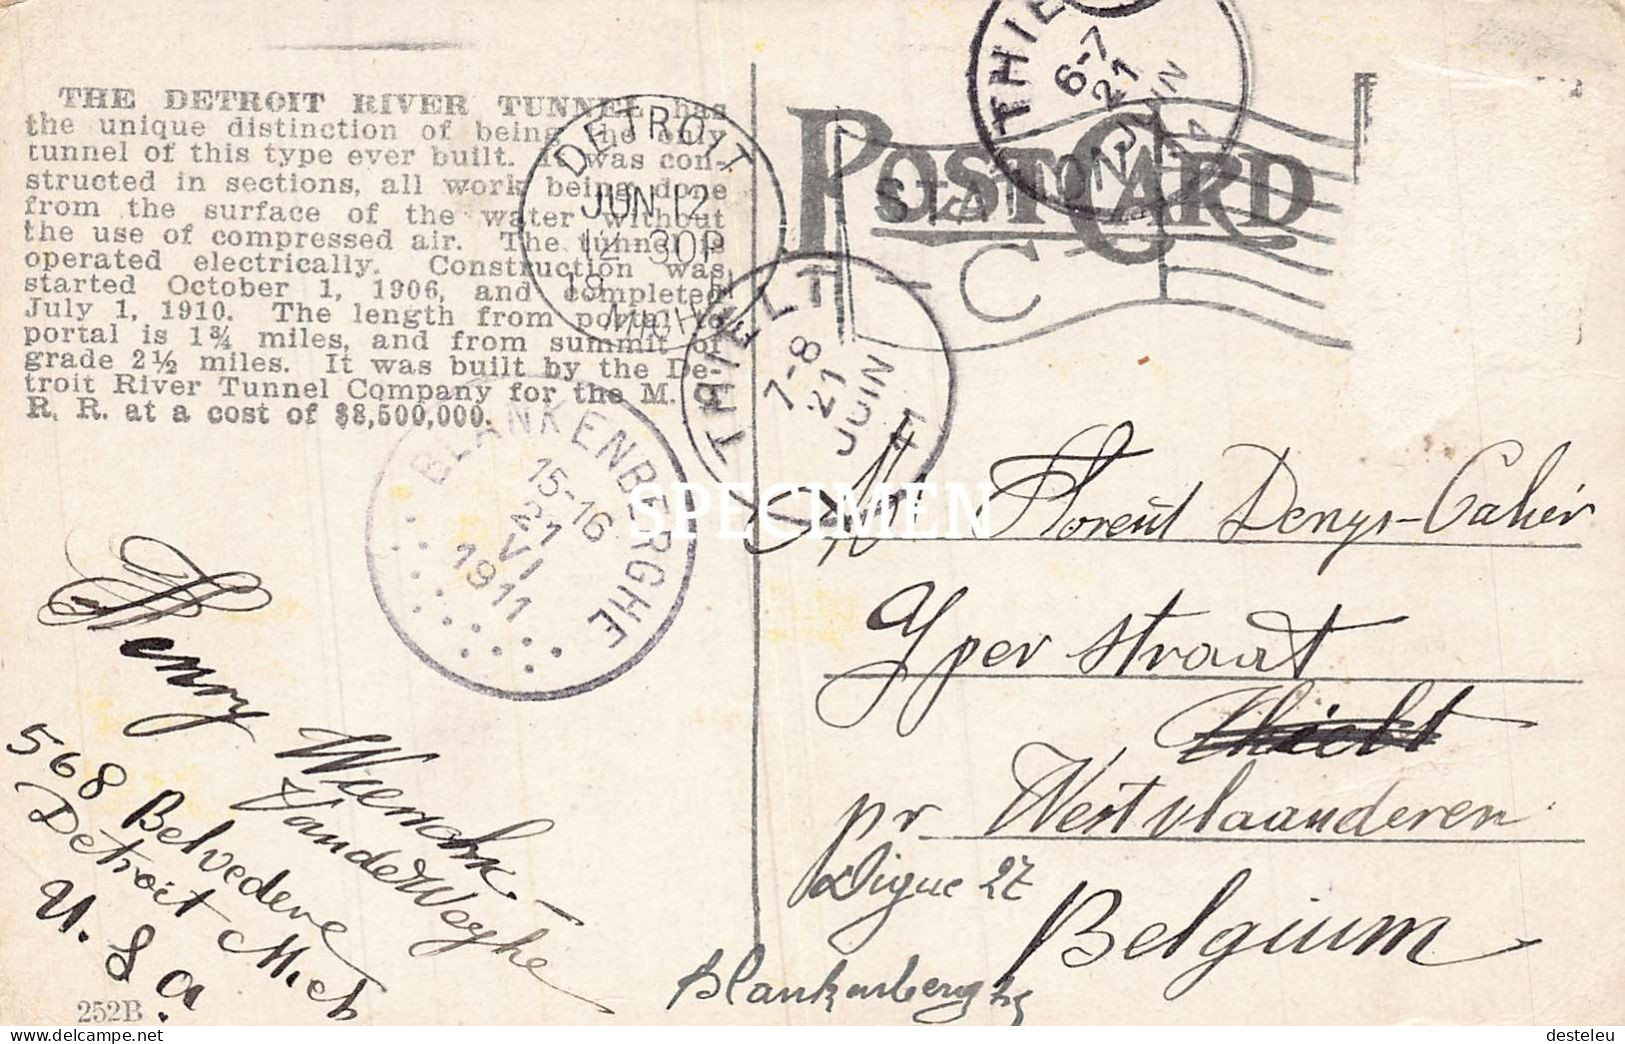 THE DETROIT RIVER TUNNEL has
the unique distinction of being the only
tunnel of this type ever built. It was con-
structed in sections, all work being done
from the surface of the water without
the use of compressed air. The tunnel is
operated electrically. Construction was
started October 1, 1906, and completed
July 1, 1910. The length from portal to
portal is 1¾ miles, and from summit of
grade 2½ miles. It was built by the De-
troit River Tunnel Company for the M.
R. R. at a cost of $8,500,000.
POST CARD
DETROIT
JUN 12
12 30P
MICH
STATION
C
THIE
6-7
21
JUIN
THIELT
7-8
21
JUIN
BLANKENBERGHE
15-16
21
VI
1911
SPECIMEN
Mr Florent Denys-Cahier
Yper straat
Thielt
pr Westvlaanderen
Digue 27
Belgium
Blankenberghe
Henry
VanderWeghe
568 Belvedere
Detroit Mich
U. S. a.
252B
www.delcampe.net
desteleu